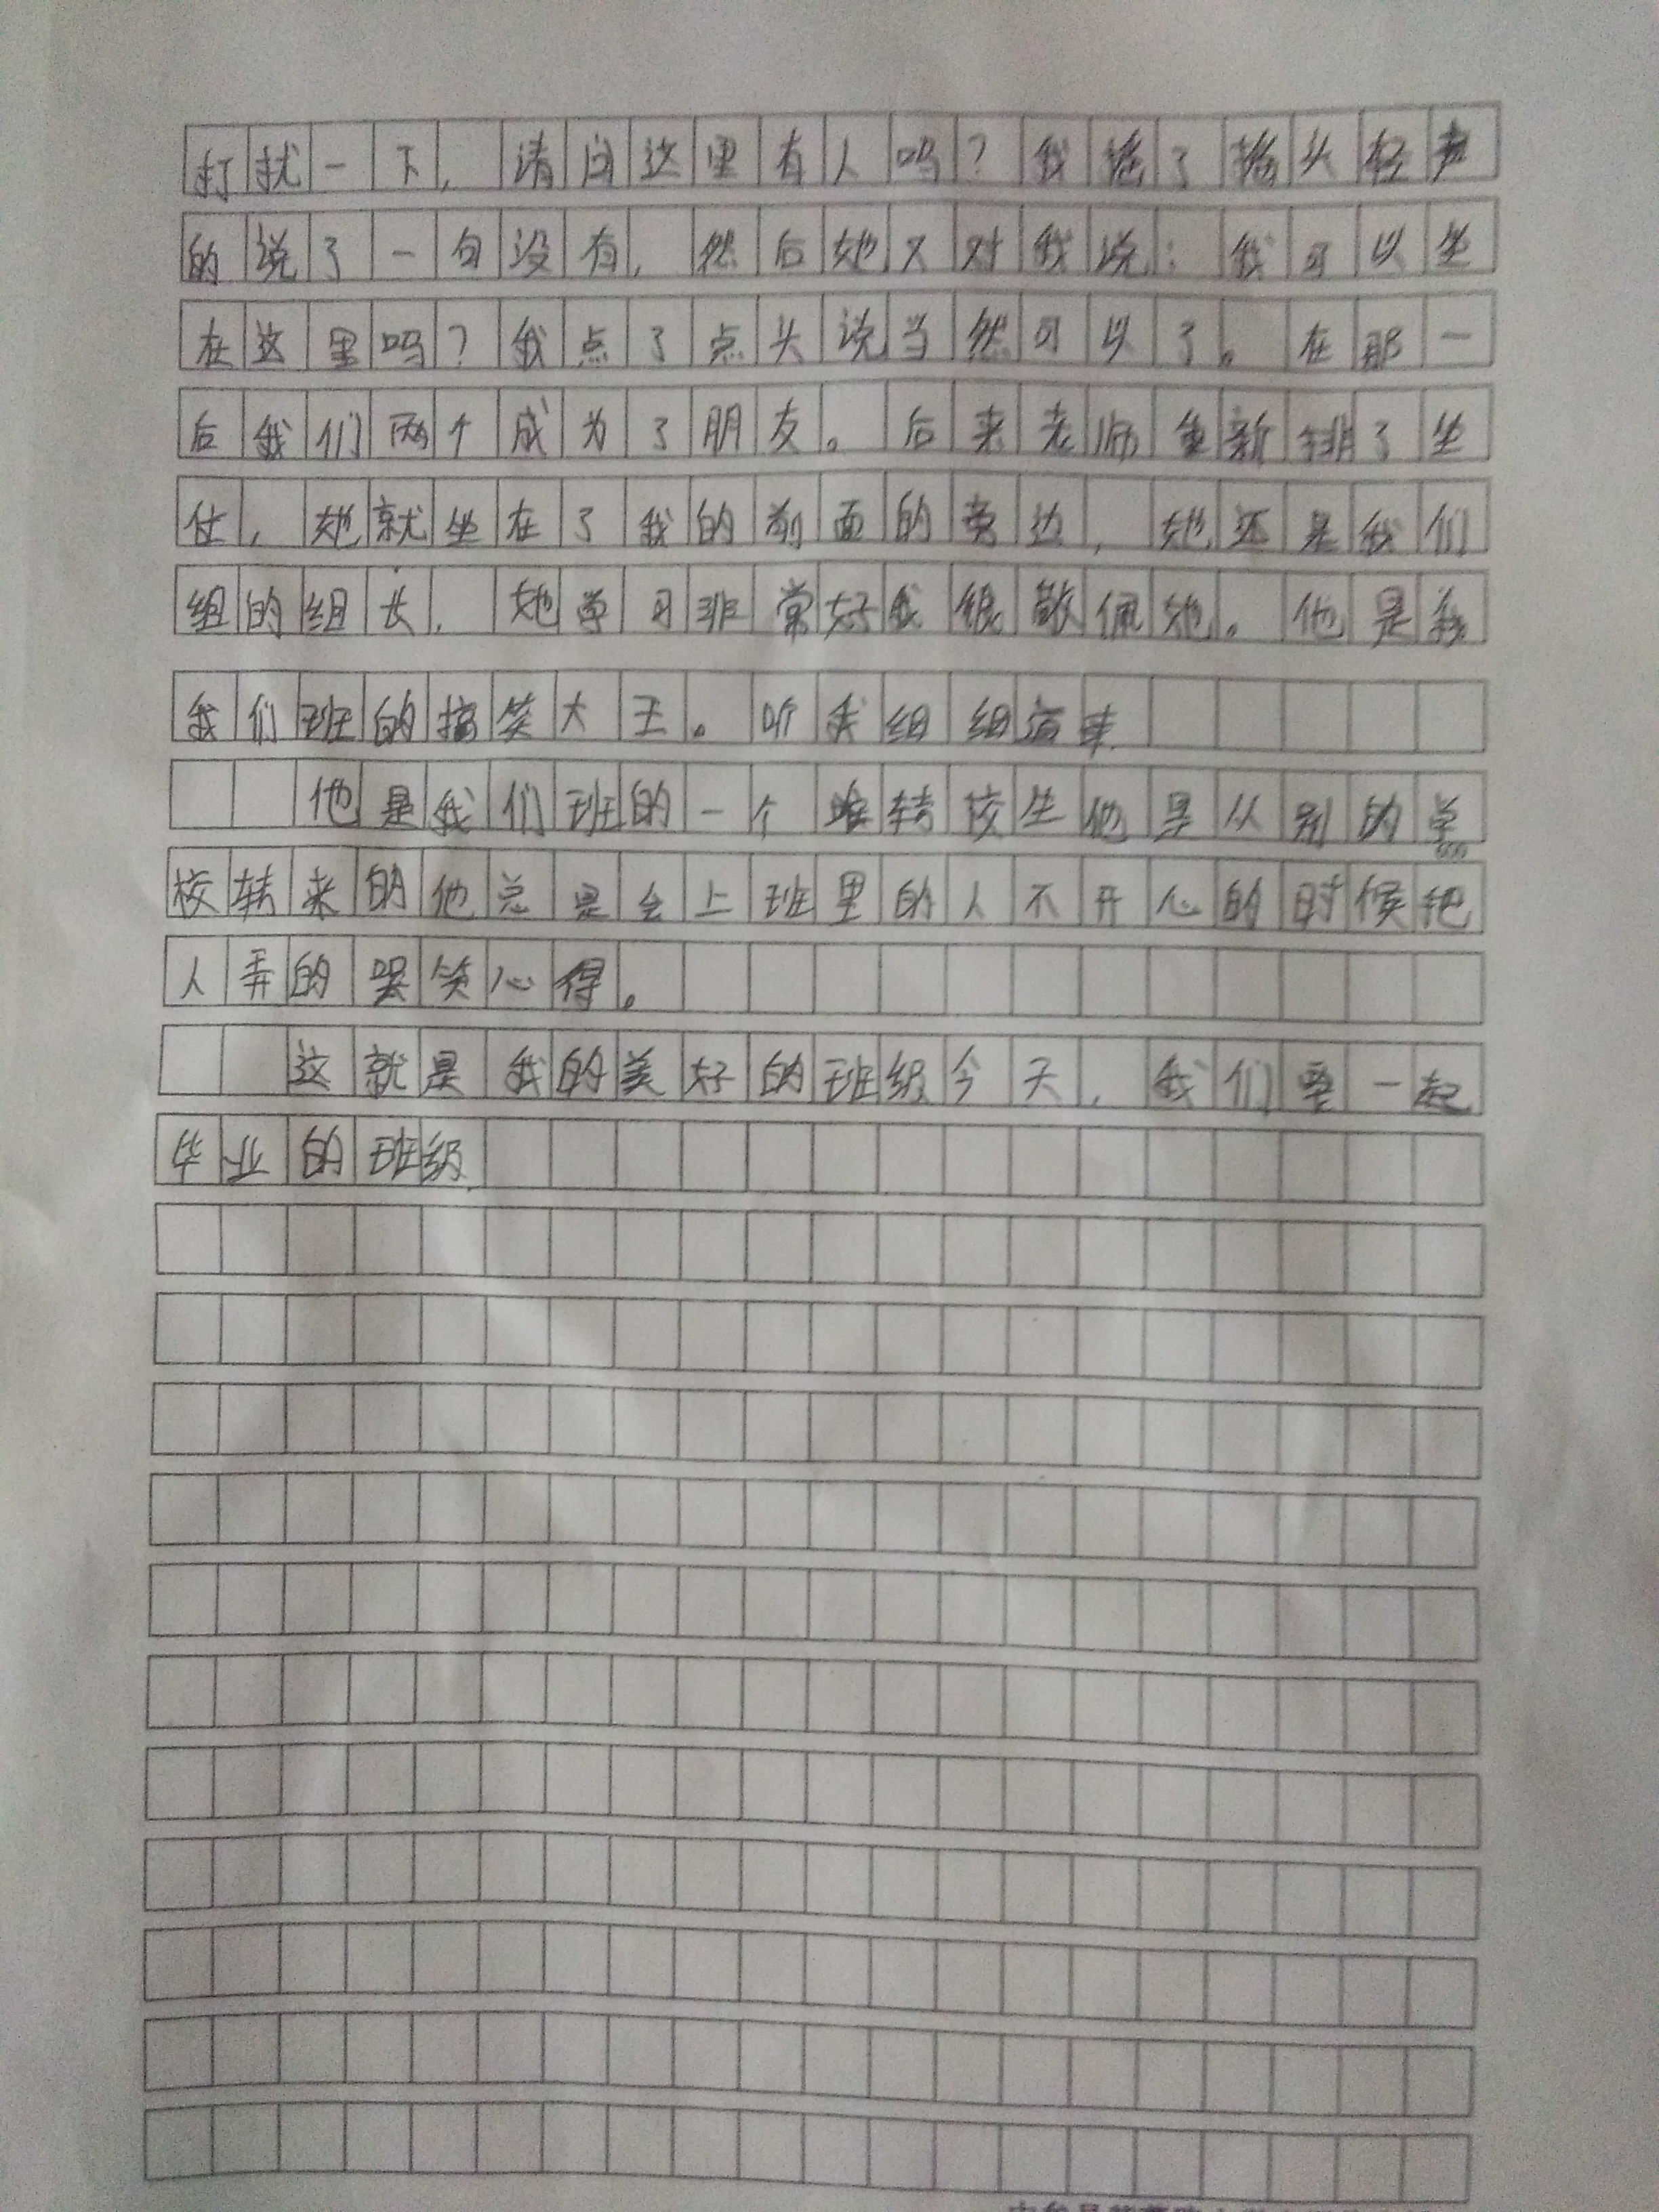 打扰一下，请问这里有人吗？我摇了摇头轻声
的说了一句没有，然后她又对我说：我可以坐
在这里吗？我点了点头说当然可以了。在那一
后我们两个成为了朋友。后来老师重新排了坐
位，她就坐在了我的前面的旁边，她还是我们
组的组长，她学习非常好我很敬佩她。他是我
我们班的搞笑大王。听我细细道来
他是我们班的一个转校生他是从别的学
600
校转来的他总是会上班里的人不开心的时候把
人弄的哭笑心得。
这就是我的美好的班级今天，我们要一起
毕业的班级